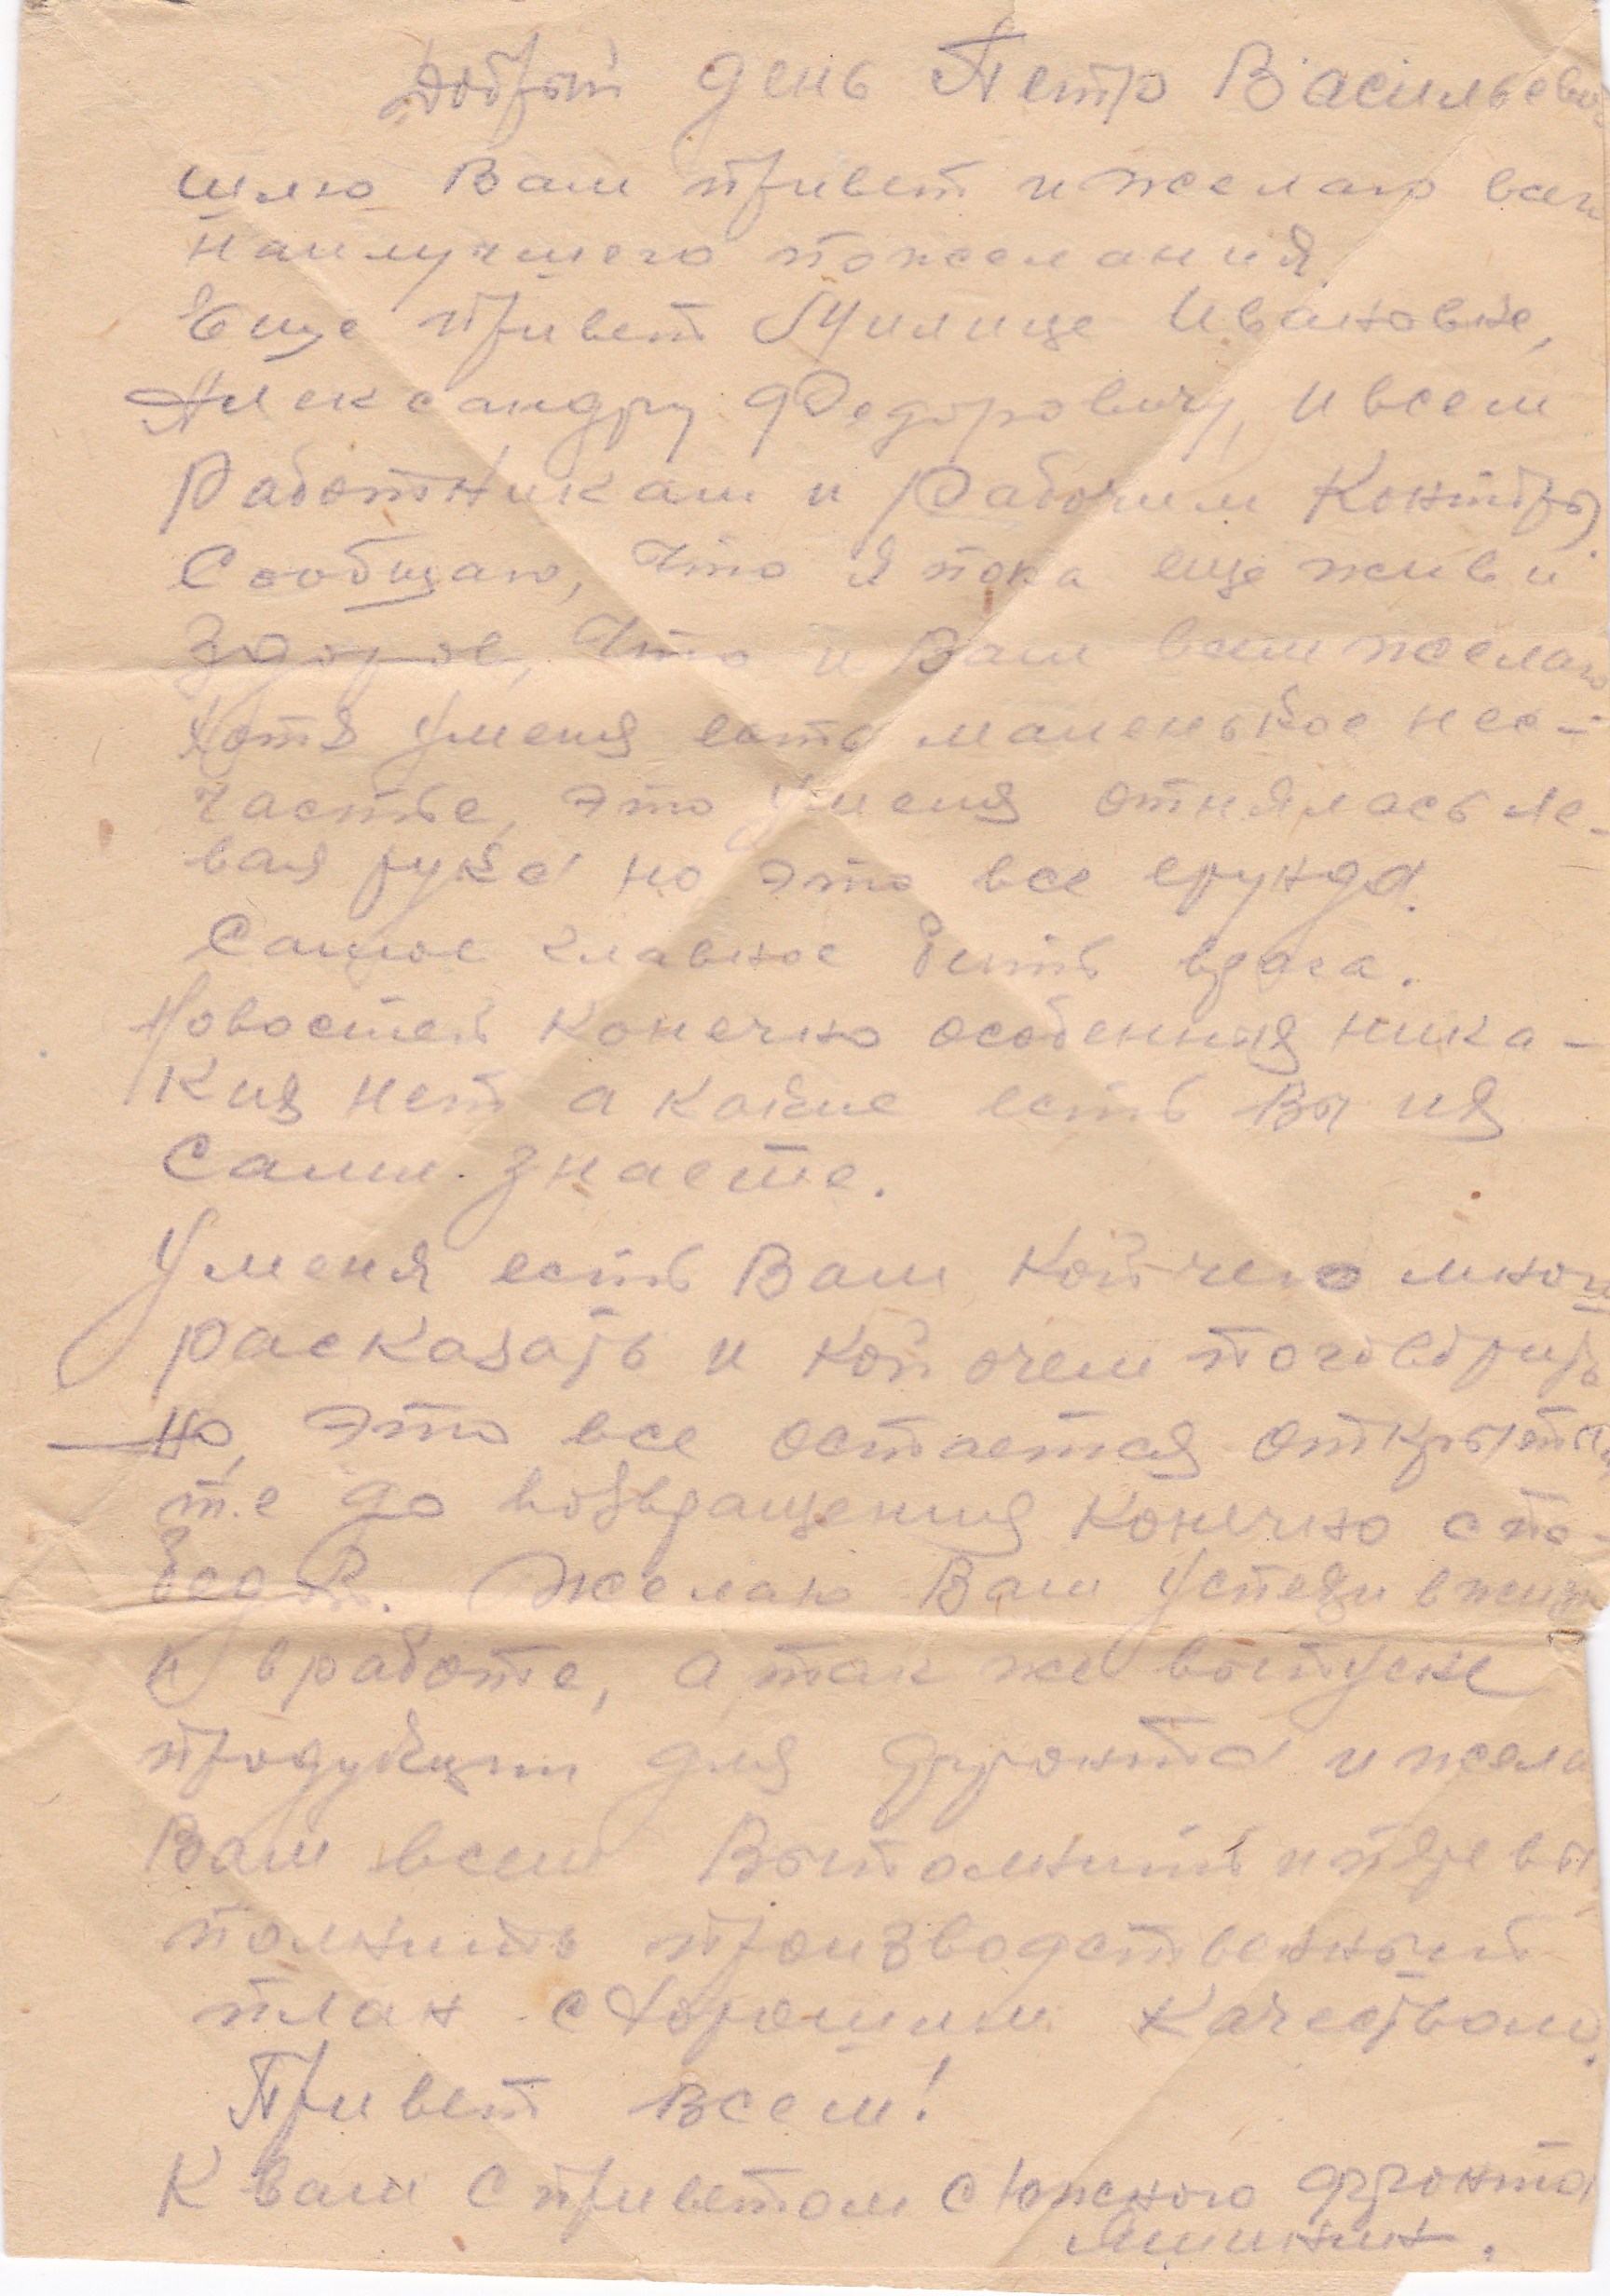 Добрый день Петр Васильевич
шлю Вам привет и желаю всего
наилучшего пожелания.
Еще привет Милице Ивановне,
Александру Федоровичу, и всем
Работникам и Рабочим Конторы.
Сообщаю, что я пока еще жив и
Здоров, Что и Вам всем желаю
Хотя Уменя есть маленькое нес-
частье, это уменя отнялась ле-
вая рука но это все ерунда.
Самое главное бить врага.
Новостей конечно особенных ника-
ких нет а какие есть Вы их
Сами знаете.
Уменя есть Вам кой чего много
расказать и кой очем поговорить
но, это все остается открытым
т.е до возвращения конечно с по-
бедой. Желаю Вам Успехи в жизни
и в работе, а так же выпуске
продукции для фронта и желаю
Вам всем Выполнить и перевы
полнить производственный
план с хорошим качеством.
Привет всем!
К вам с приветом с Южного фронта